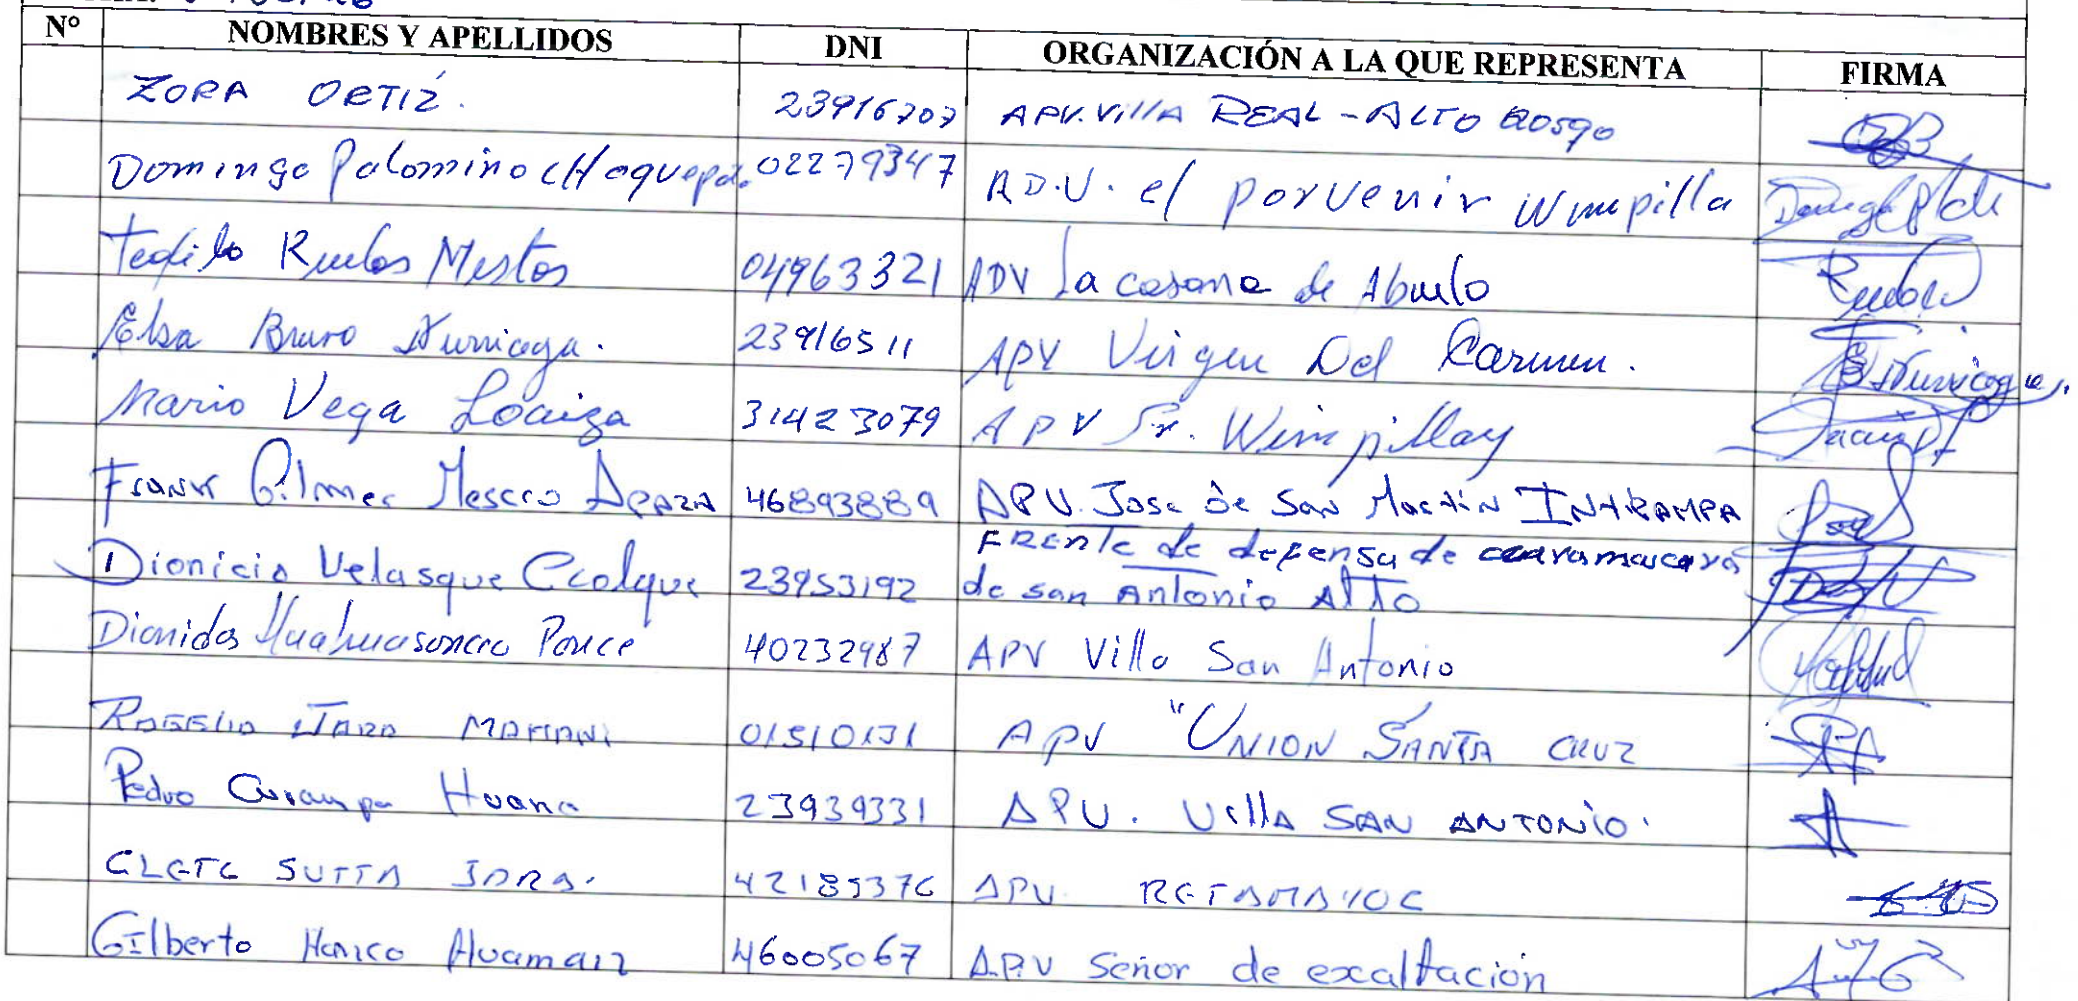 N° NOMBRES Y APELLIDOS DNI ORGANIZACIÓN A LA QUE REPRESENTA FIRMA
ZORA ORTIZ. 23916707 APV. VillA REAL - ALTO Qosqo
Domingo Palomino cHoquepa. 02279347 A.D.V. el porvenir wimpilla
Teofilo Ruelas Mestas 04963321 ADV La casona de Abuelo
Elsa Bravo Iturriaga. 23916511 APV Virgen Del Carmen.
Mario Vega Loaiza 31423079 APV Sr. Wimpillay
Frank Gilmer Mescco Apaza 46893889 APV. Jose de San Martin INTIRAMPA
Dionicio Velasque Ccolque 23953192 FRENTE de defensa de
de san Antonio Alto
Dionidas Huahuasoncco Ponce 40232987 APV Villa San Antonio
ROGELIO JARA MAMANI 01510131 APV "UNION SANTA CRUZ
Pedro Huanca 23939331 APV. VillA SAN ANTONIO.
CLETO SUTTA JARA. 42185376 APV. RETAMAYOC
Gilberto Hancco Huamani 46005067 A.P.V Señor de exaltación